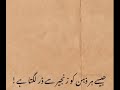 جیسے ہر ذہن کو زنجیر سے ڈر لگتا ہے !